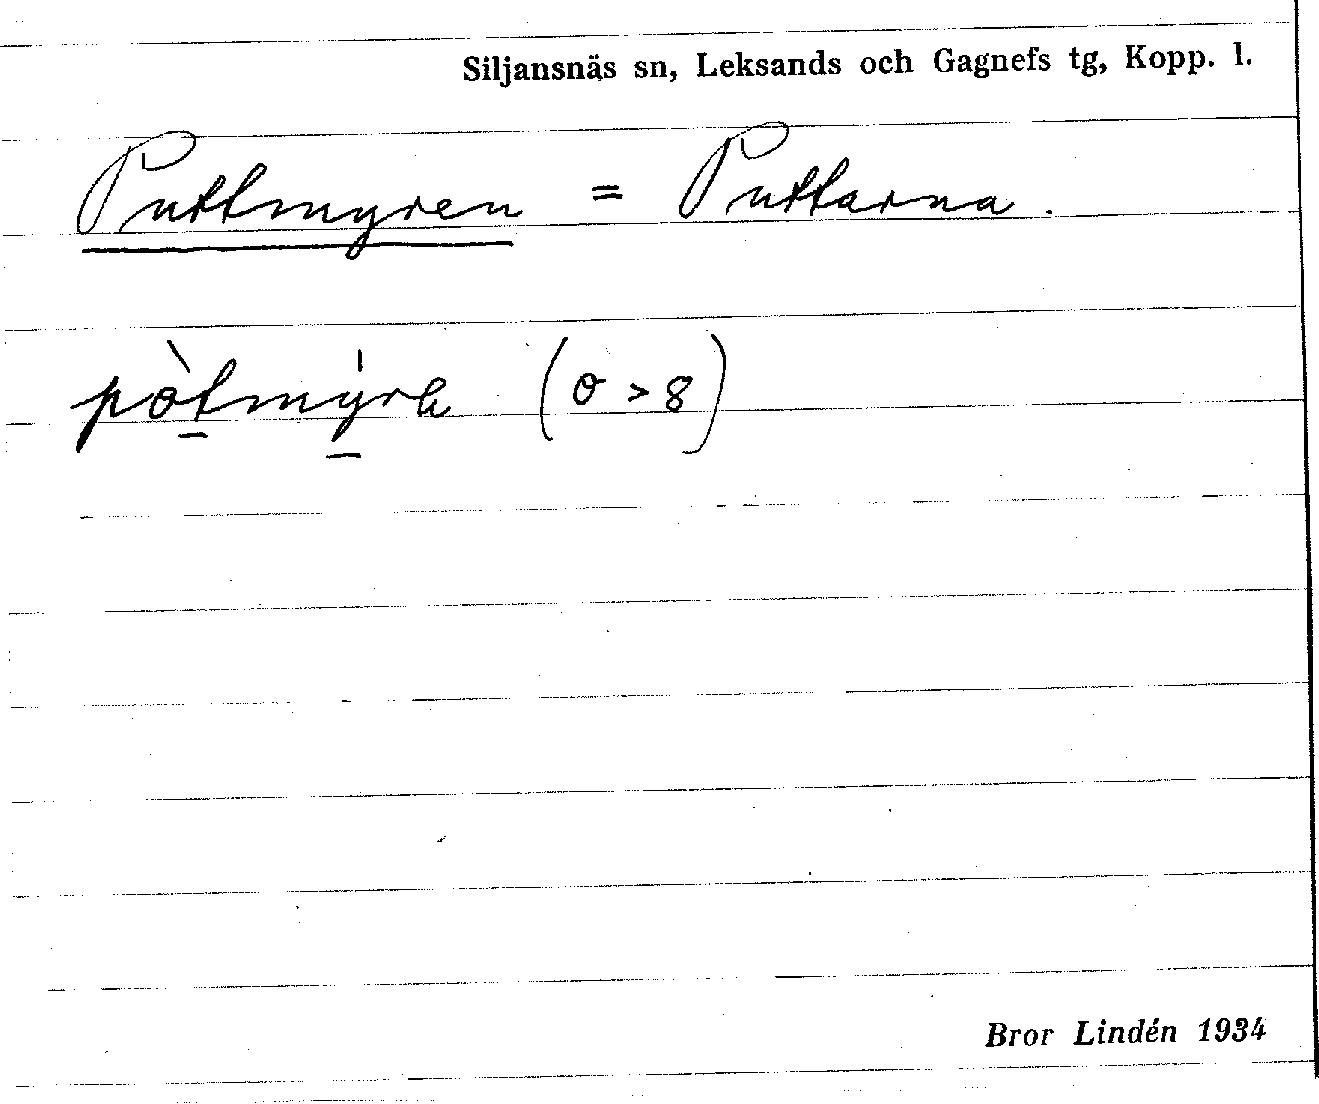 Siljansnäs sn, Leksands och Gagnefs tg, Kopp. l.
Puttmyren = Puttarna.
(o > 8)
Bror Lindén 1934